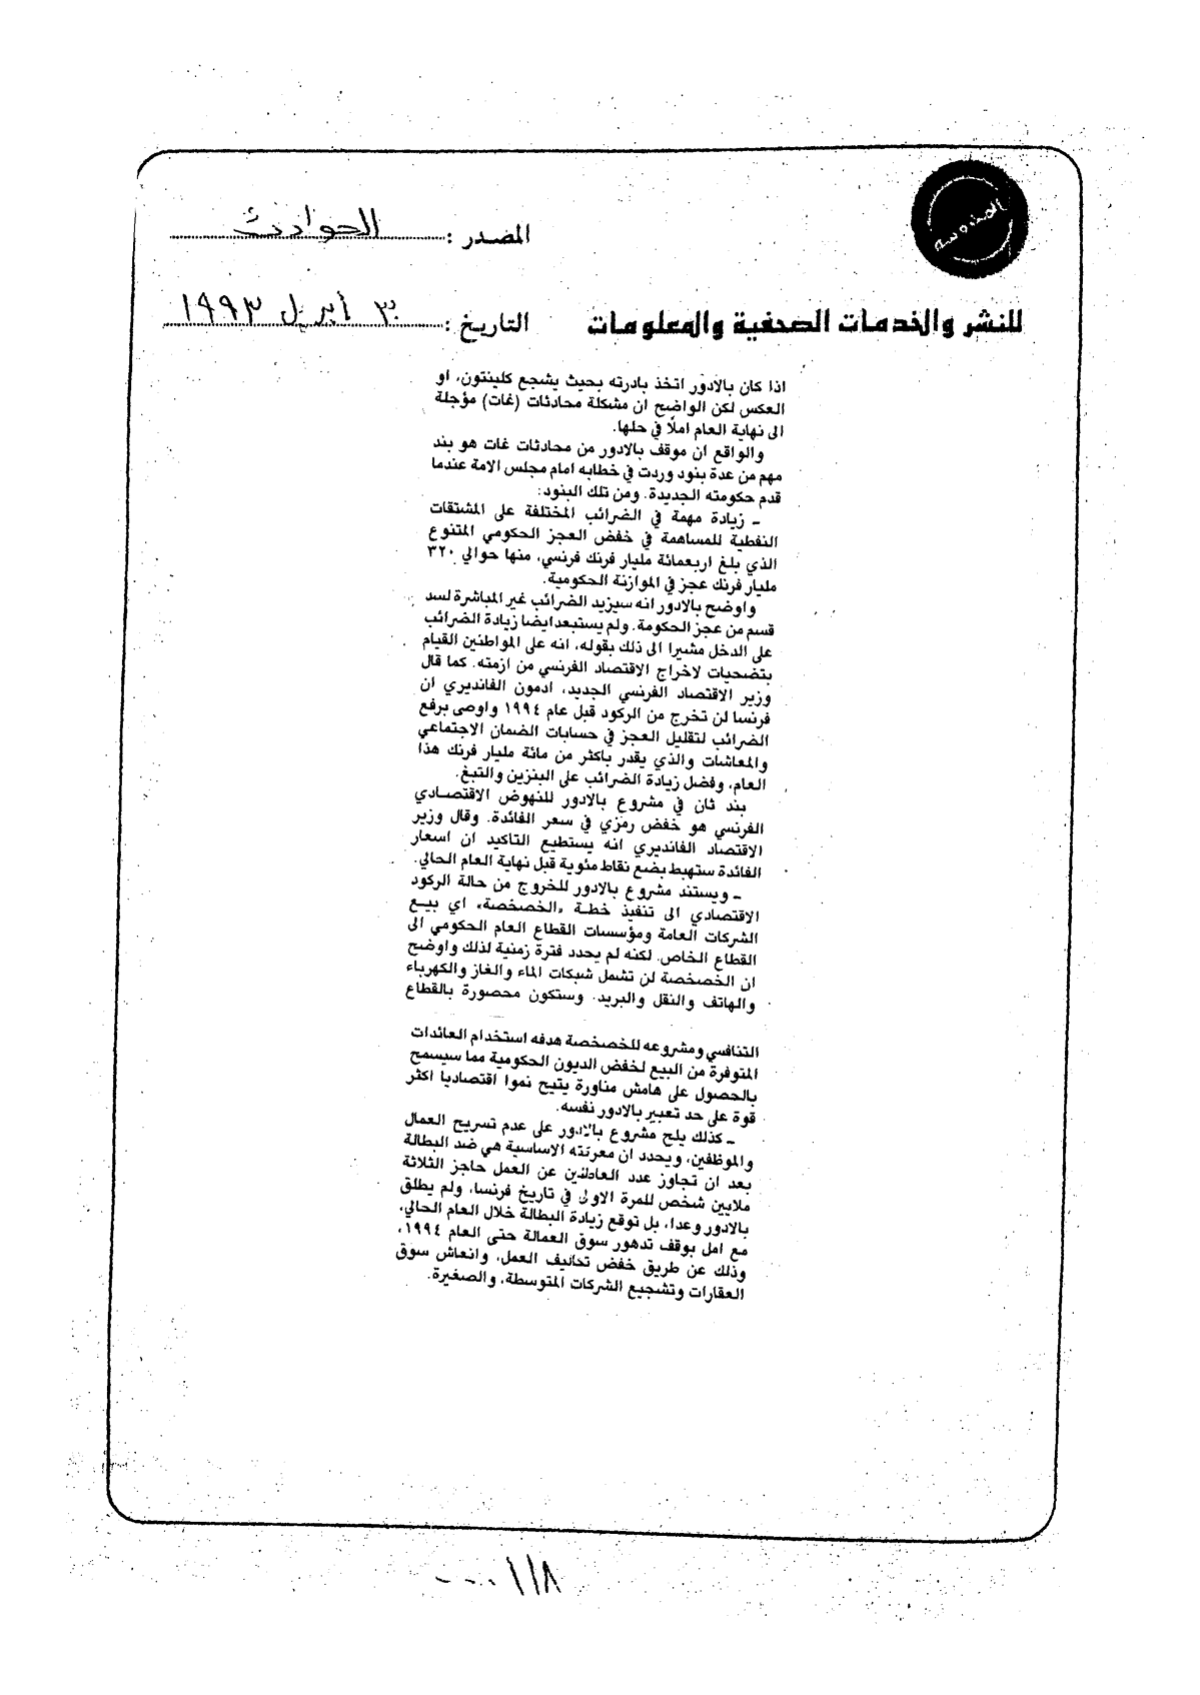 المصدر : الحوادث
للنشر والخدمات الصحفية والمعلومات
التاريخ : ٣٠ أبريل ١٩٩٣
اذا كان بالادور اتخذ بادرته بحيث يشجع كلينتون، او
العكس لكن الواضح ان مشكلة محادثات (غات) مؤجلة
الى نهاية العام املًا في حلها.
والواقع ان موقف بالادور من محادثات غات هو بند
مهم من عدة بنود وردت في خطابه امام مجلس الامة عندما
قدم حكومته الجديدة. ومن تلك البنود:
ـ زيادة مهمة في الضرائب المختلفة على المشتقات
النفطية للمساهمة في خفض العجز الحكومي المتنوع
الذي بلغ اربعمائة مليار فرنك فرنسي، منها حوالي ٣٢٠
مليار فرنك عجز في الموازنة الحكومية.
واوضح بالادور انه سيزيد الضرائب غير المباشرة لسد
قسم من عجز الحكومة. ولم يستبعد ايضا زيادة الضرائب
على الدخل مشيرا الى ذلك بقوله، انه على المواطنين القيام
بتضحيات لاخراج الاقتصاد الفرنسي من ازمته. كما قال
وزير الاقتصاد الفرنسي الجديد، ادمون الفانديري ان
فرنسا لن تخرج من الركود قبل عام ١٩٩٤ واوصى برفع
الضرائب لتقليل العجز في حسابات الضمان الاجتماعي
والمعاشات والذي يقدر باكثر من مائة مليار فرنك هذا
العام، وفضل زيادة الضرائب على البنزين والتبغ.
بند ثان في مشروع بالادور للنهوض الاقتصادي
الفرنسي هو خفض رمزي في سعر الفائدة. وقال وزير
الاقتصاد الفانديري انه يستطيع التاكيد ان اسعار
الفائدة ستهبط بضع نقاط مئوية قبل نهاية العام الحالي.
ـ ويستند مشروع بالادور للخروج من حالة الركود
الاقتصادي الى تنفيذ خطة «الخصخصة» اي بيع
الشركات العامة ومؤسسات القطاع العام الحكومي الى
القطاع الخاص. لكنه لم يحدد فترة زمنية لذلك واوضح
ان الخصخصة لن تشمل شبكات الماء والغاز والكهرباء
والهاتف والنقل والبريد. وستكون محصورة بالقطاع
التنافسي ومشروعه للخصخصة هدفه استخدام العائدات
المتوفرة من البيع لخفض الديون الحكومية مما سيسمح
بالحصول على هامش مناورة يتيح نموا اقتصاديا اكثر
قوة على حد تعبير بالادور نفسه.
ـ كذلك يلح مشروع بالادور على عدم تسريح العمال
والموظفين، ويحدد ان معركته الاساسية هي ضد البطالة
بعد ان تجاوز عدد العاطلين عن العمل حاجز الثلاثة
ملايين شخص للمرة الاولى في تاريخ فرنسا، ولم يطلق
بالادور وعدا، بل توقع زيادة البطالة خلال العام الحالي،
مع امل بوقف تدهور سوق العمالة حتى العام ١٩٩٤،
وذلك عن طريق خفض تكاليف العمل، وانعاش سوق
العقارات وتشجيع الشركات المتوسطة، والصغيرة.